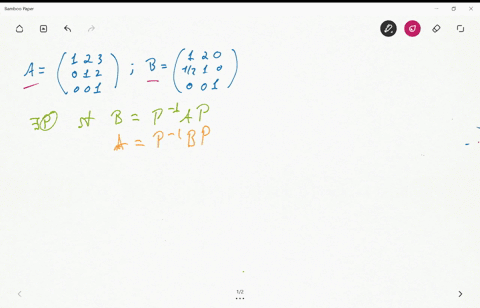 Bamboo Paper
A = ( 1 2 3 ; 0 1 2 ; 0 0 1 ) ; B = ( 1 2 0 ; 1/2 1 0 ; 0 0 1 )
∃P st B = P⁻¹AP
A = P⁻¹BP
1/2